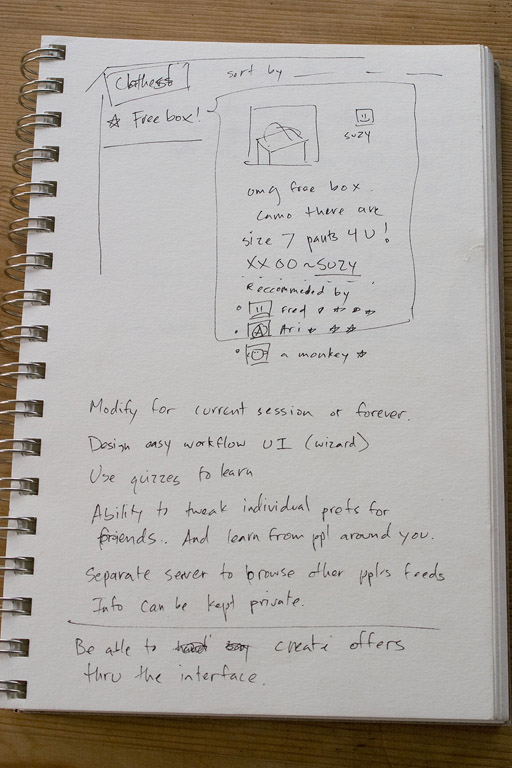 Clothes
sort by
☆ Free box!
SUZY
omg free box.
Camo there are
size 7 pants 4 U!
XX OO ~ SUZY
Reccommeded by
Fred ☆ ☆ ☆ ☆
Ari ☆ ☆ ☆
a monkey ☆
Modify for current session or forever.
Design easy workflow UI (wizard)
Use quizzes to learn
Ability to tweak individual prefs for
friends.. And learn from ppl around you.
Separate server to browse other ppl's feeds
Info can be kept private.
Be able to create offers
thru the interface.